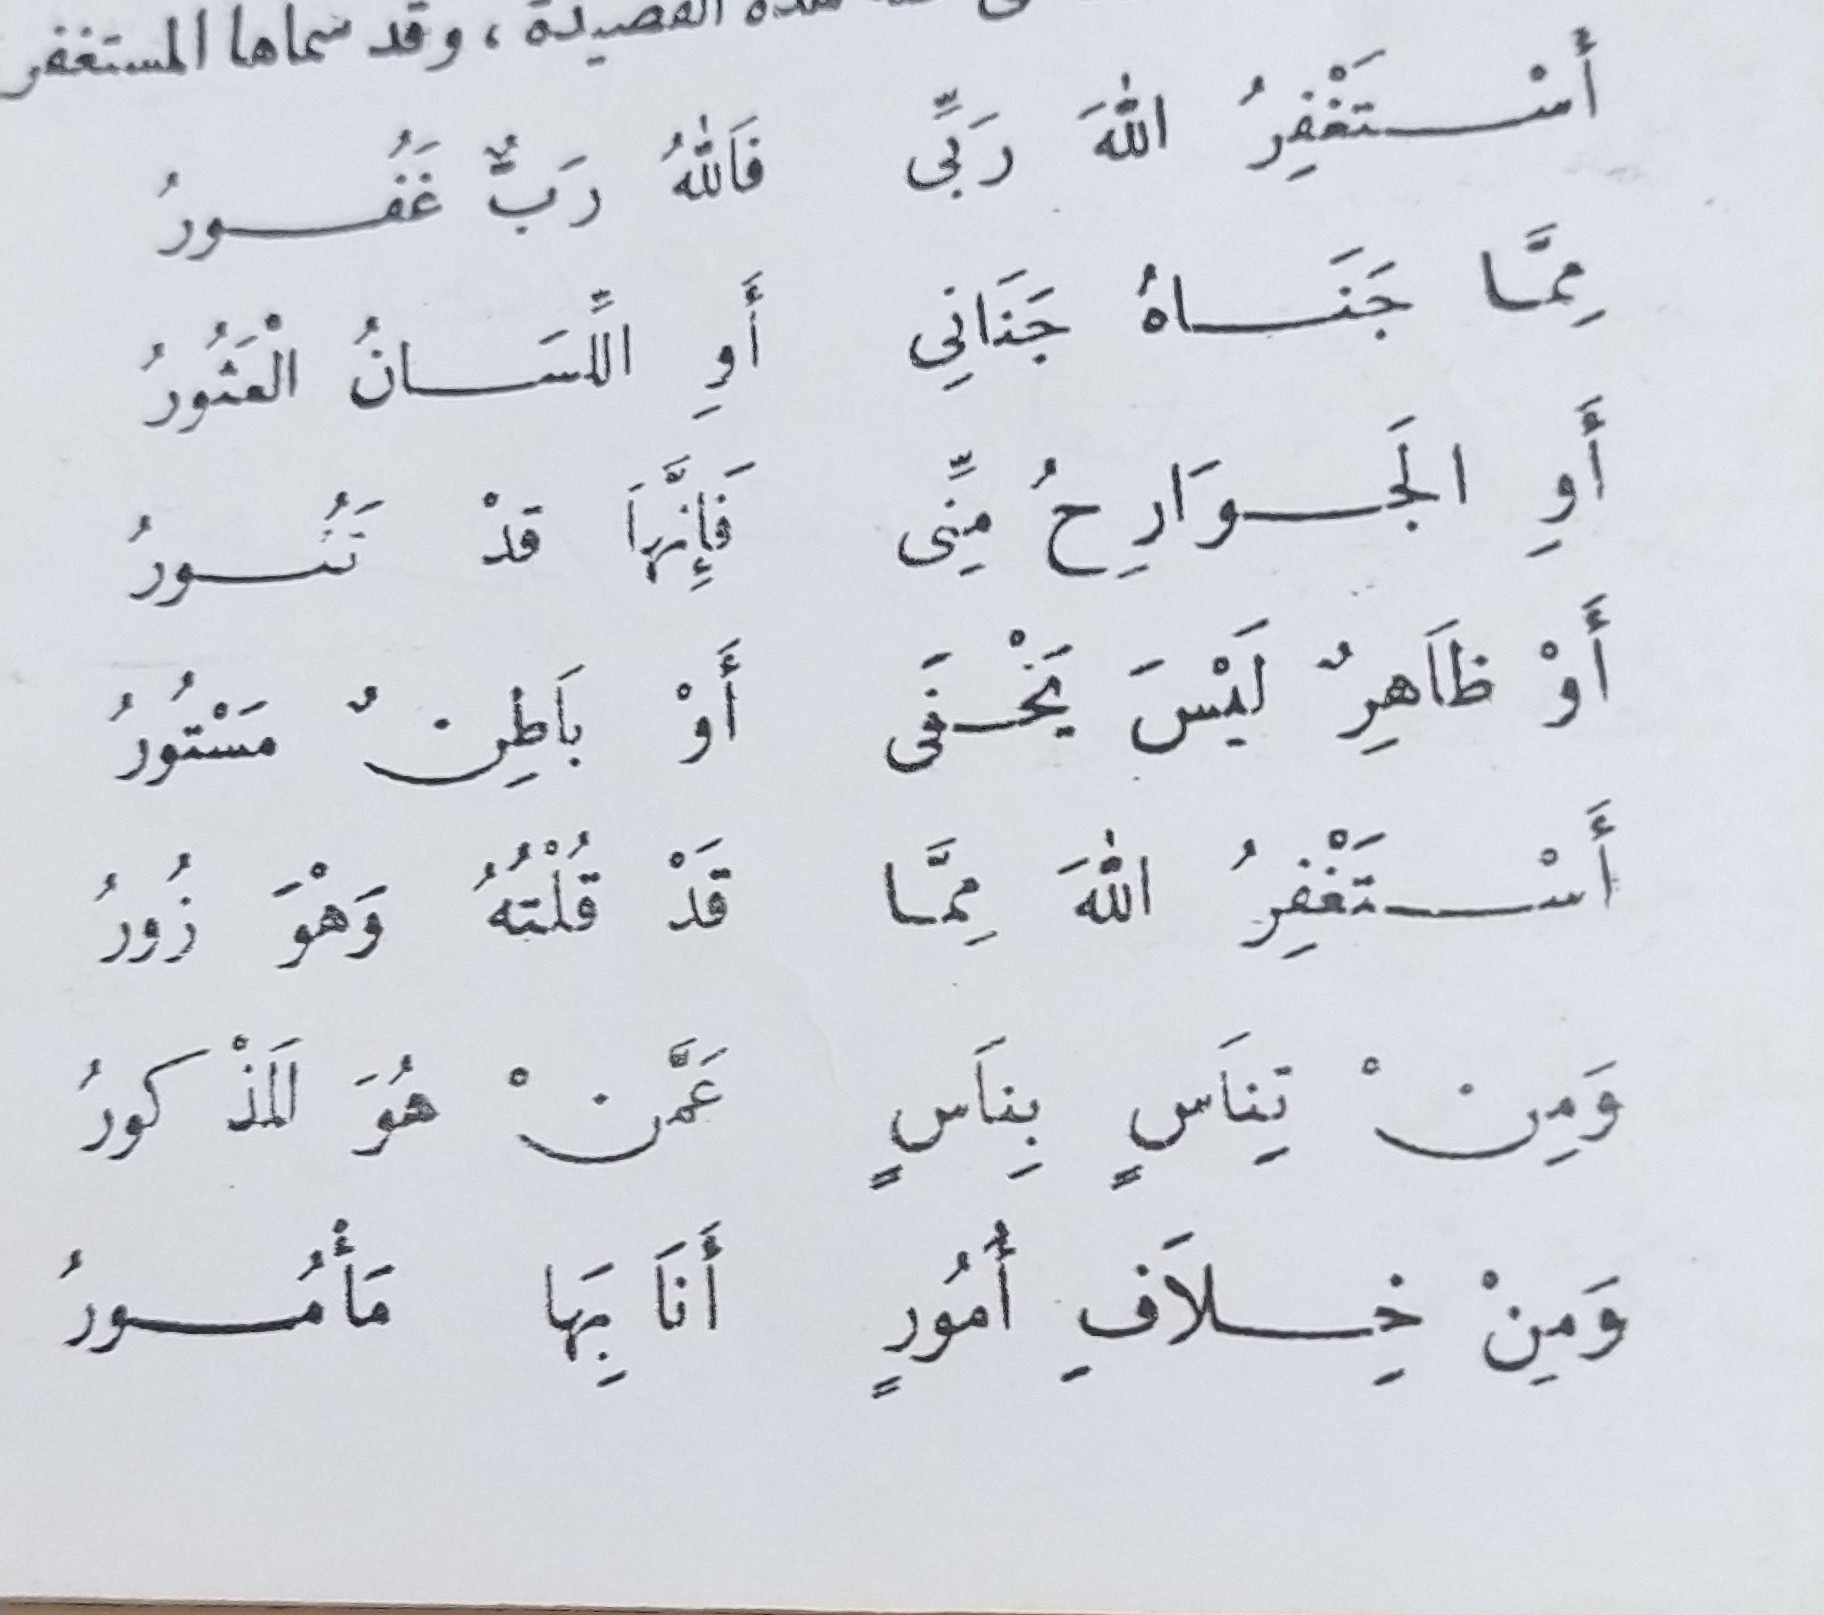 هذه القصيدة ، وقد سماها المستغفر
أَسْتَغْفِرُ اللهَ رَبِّى فَاللهُ رَبٌّ غَفُورُ
مِمَّا جَنَاهُ جَنَانِي أَوِ اللِّسَانُ الْعَثُورُ
أَوِ الجَوَارِحُ مِنِّى فَإِنَّهَا قدْ تَنُورُ
أَوْ ظَاهِرٌ لَيْسَ يَخْفَى أَوْ بَاطِنٌ مَسْتُورُ
أَسْتَغْفِرُ اللهَ مِمَّا قَدْ قُلْتُهُ وَهْوَ زُورُ
وَمِنْ تِنَاسٍ بِنَاسٍ عَمَّنْ هُوَ المَذْكورُ
وَمِنْ خِلاَفِ أُمُورٍ أَنَا بِهَا مَأْمُورُ